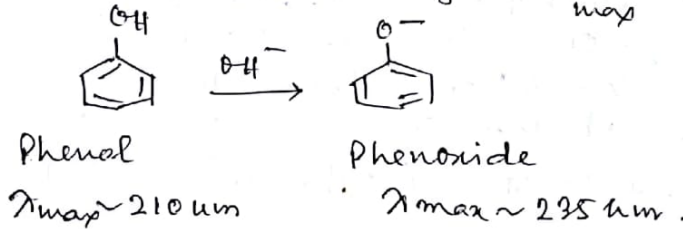 max
OH
O⁻
OH⁻
Phenol
Phenoxide
λmax ~ 210 nm
λmax ~ 235 nm.